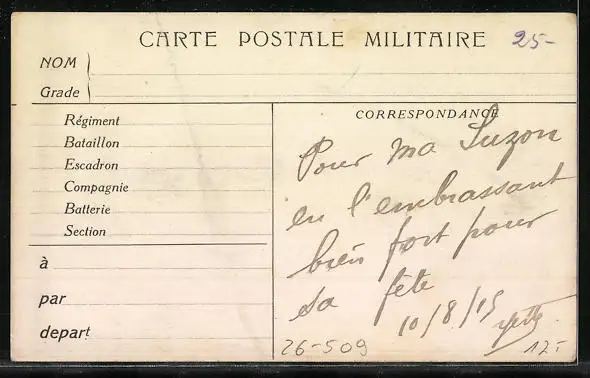 CARTE POSTALE MILITAIRE
25-
NOM
Grade
Régiment
Bataillon
Escadron
Compagnie
Batterie
Section
à
par
depart
CORRESPONDANCE
Pour ma Suzon
en l'embrassant
bien fort pour
sa fête
10/8/15
26-509
12-